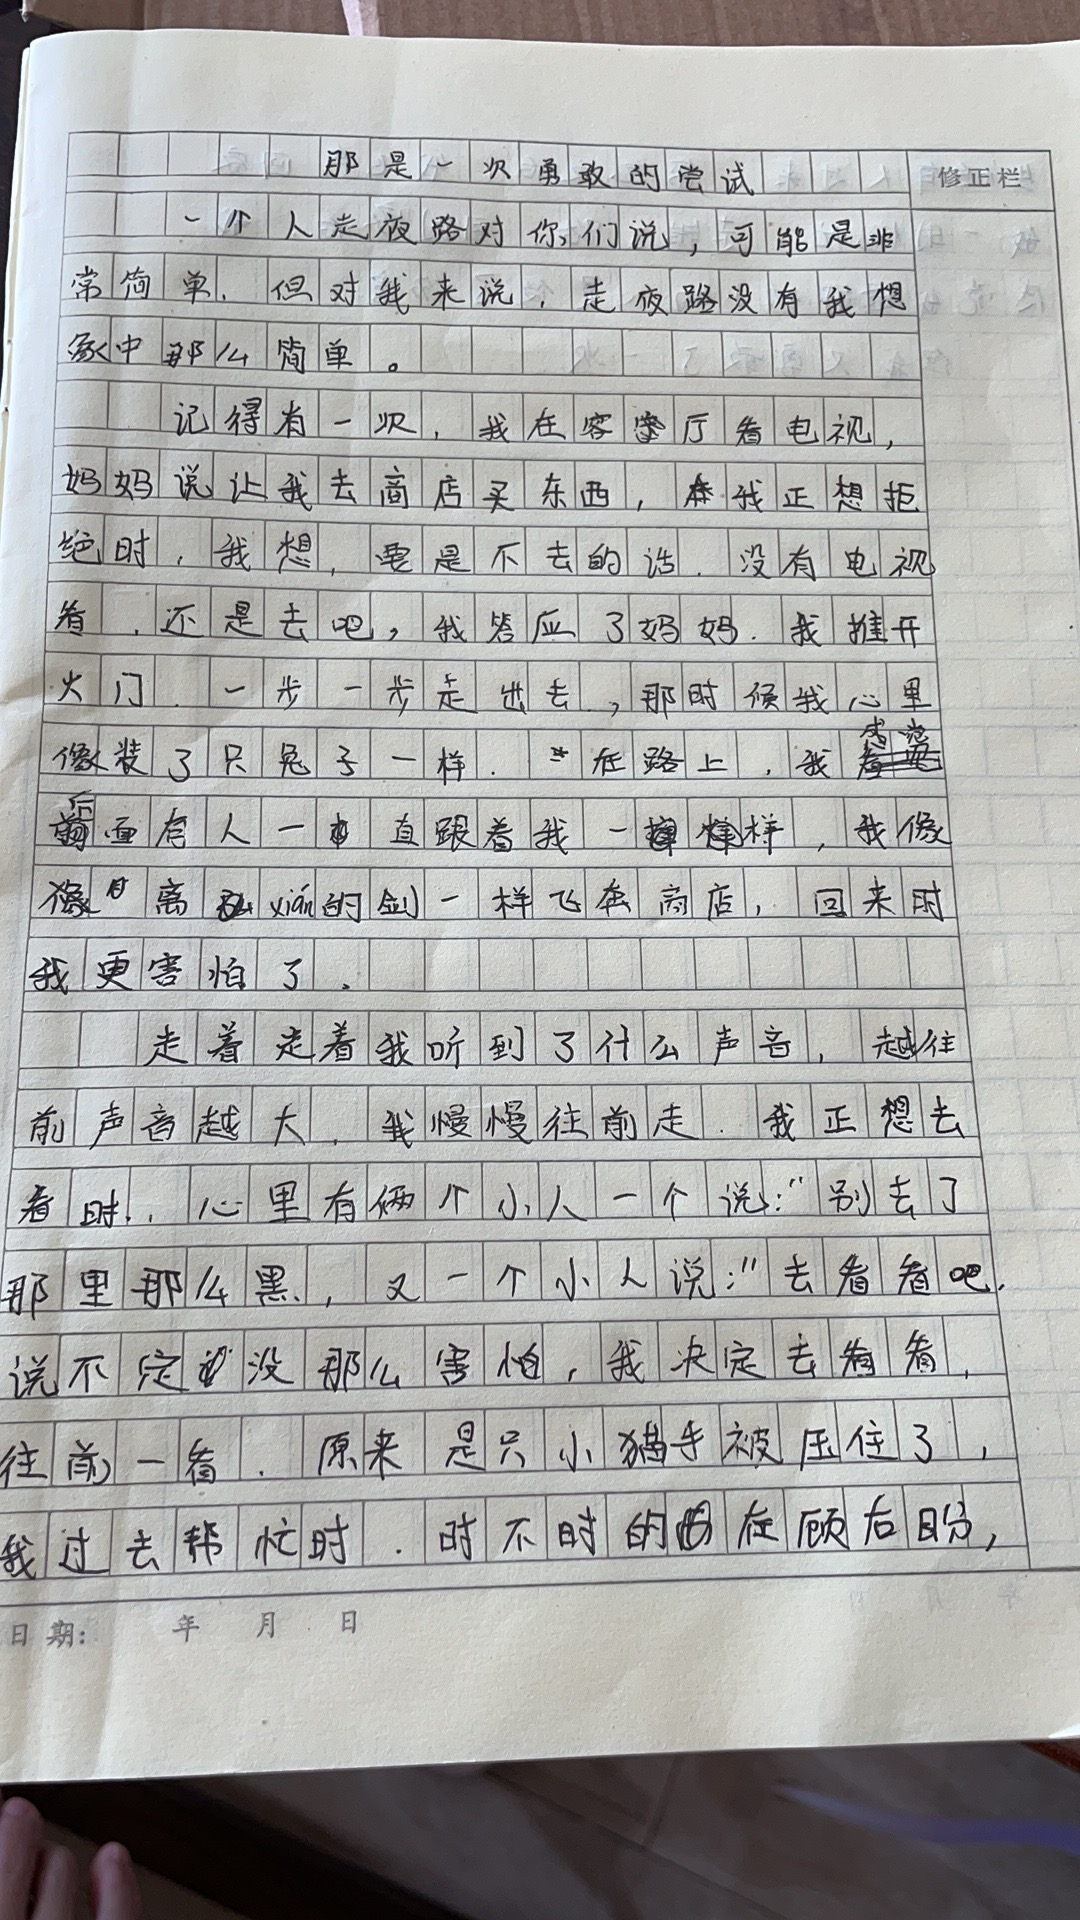 那是一次勇敢的尝试
修正栏
一个人走夜路对你们说，可能是非
常简单，但对我来说，走夜路没有我想
象中那么简单。
记得有一次，我在客厅看电视，
妈妈说让我去商店买东西，我正想拒
绝时，我想，要是不去的话，没有电视
看，还是去吧，我答应了妈妈，我推开
大门，一步一步走出去，那时候我心里
像装了只兔子一样，在路上，我感觉
后面有人一直跟着我一样，我像
离xián的剑一样飞奔商店，回来时
我更害怕了。
走着走着我听到了什么声音，越往
前声音越大，我慢慢往前走，我正想去
看时，心里有俩个小人一个说：“别去了
那里那么黑，又一个小人说：“去看看吧，
说不定没那么害怕，我决定去看看，
往前一看，原来是只小猫手被压住了，
我过去帮忙时，时不时的在顾右盼，
日期：年月日